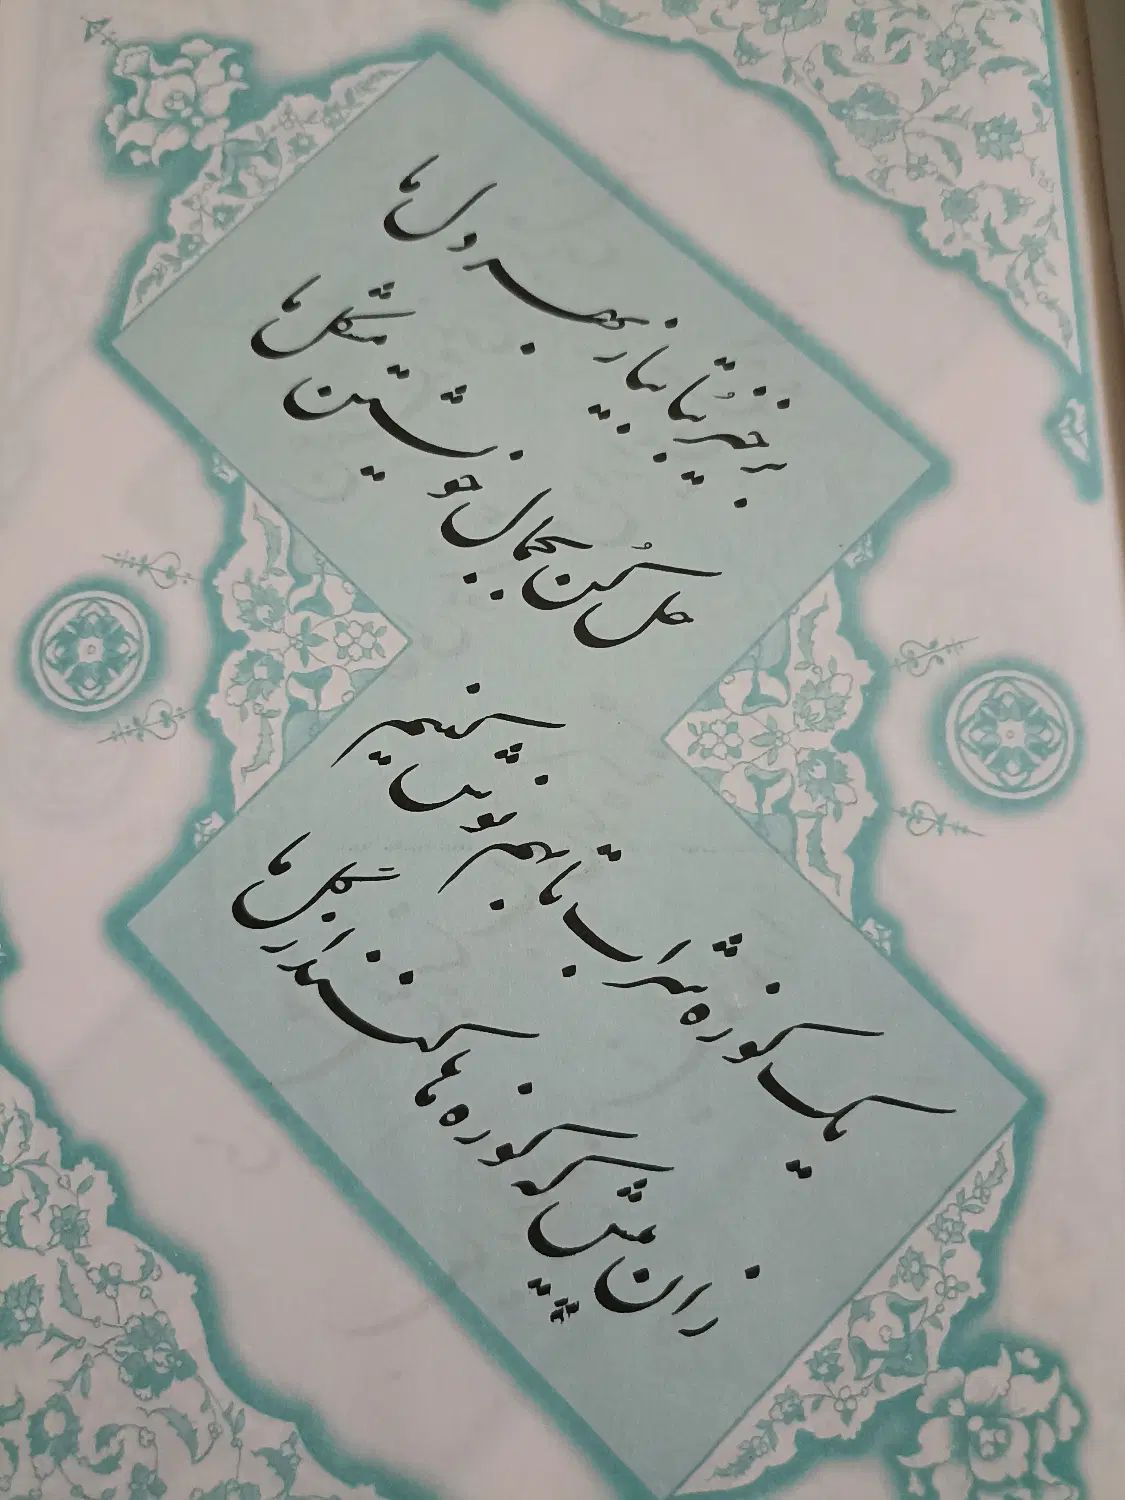 برخیز بُتا بیا ز بهر دل ما
حل کُن بجمال خویشتن مشکل ما
یک کوزه شراب تا بهم نوش کنیم
زان پیش که کوزه‌ها کنند از گِل ما